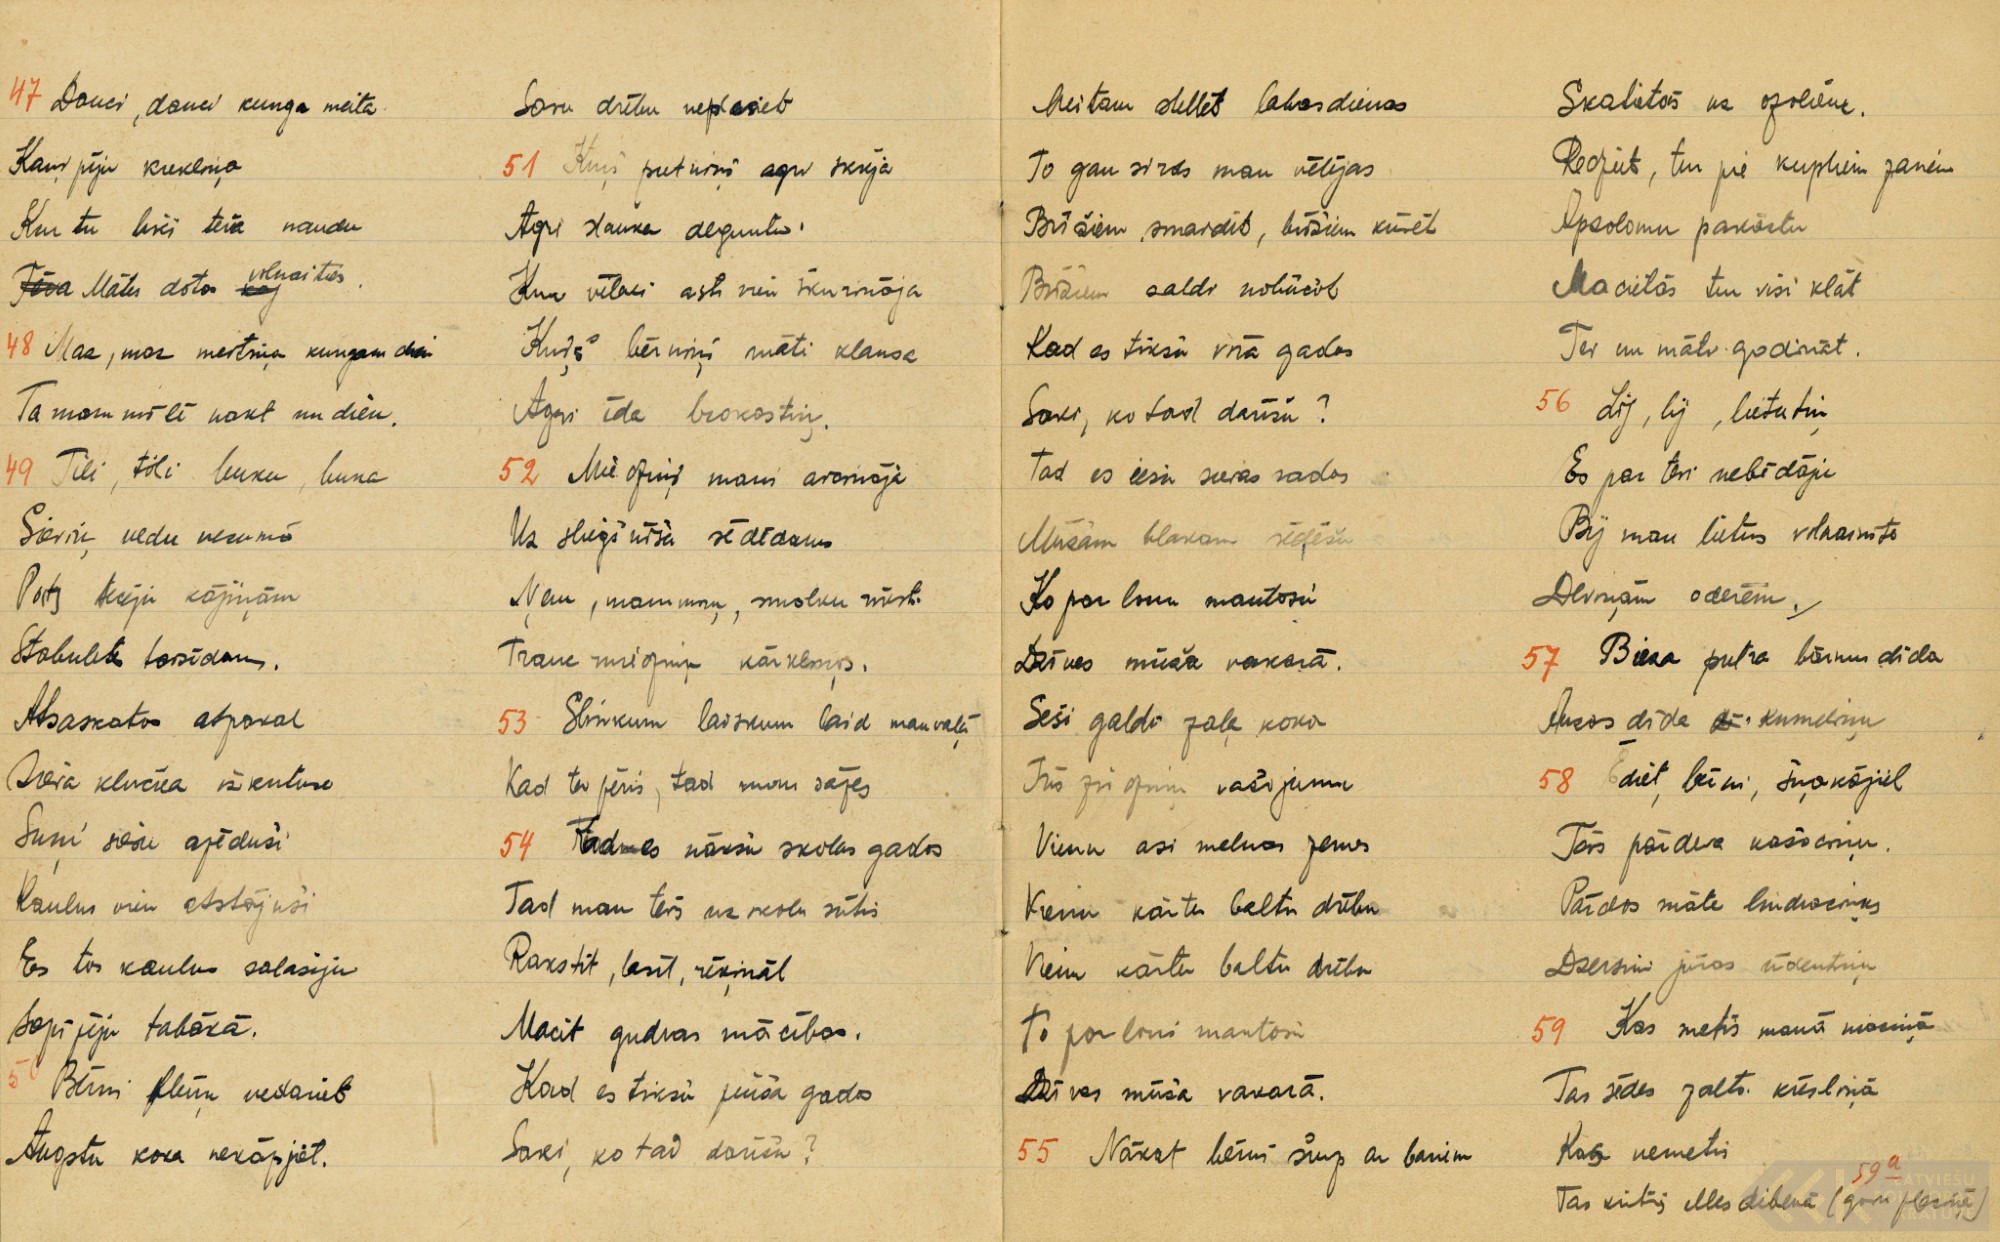 47 Danci, danci kunga meita
Kaņipiju krekliņa
Kur tu liksi tēva naudu
Tēva Mātes dotas volnaites.
48 Maz, maz meitiņa kungam dēi
Ta mani mīlē nakt un dien.
49 Tili, tili buku, buka
Sieviņ vedu vezumā
Pats teciju kājiņām
Stabulītes taisīdams.
Atsaskatos atpakaļ
Sieva kluciša izkutuse
Suņi sievu apēduši
Kaulus vien atstājuši
Es tos kaulus salasiju
Sapipēju tabākā.
50 Bērni bļēņu nedariet
Augstu koka nekāpjiet.
Savu drēbu neplesiet
51 Kuŗš putniņš agri skrēja
Agri slauka deguntiņ.
Kur vēlaki ast vien škurināja
Kuŗš bērniņš māti klausa
Agri ēda brokastiņ.
52 Miegiņš mani ararināja
Uz sliegšniša sēdēdams
Ņem, mammiņ, smalku rīkst.
Trauc miedziņu kārkliņos.
53 Slinkum laiskum laid man vaļā
Kad tev pēris, tad man sāpēs
54 Kad es nākšu skolas gados
Tad man tēvs uz skolu sūtīs
Rakstīt, lasīt, rēķināt
Mācīt gudras mācības.
Kad es tikšu puiša gados
Saki, ko tad darīšu?
Meitam sķellēt labasdienas
To gan sirds man vēlējas
Brīžiem smardēt, brīžiem kūrēt
Brīžiem saldi nobūčot
Kad es tikšu vīra gados
Saki, ko tad darīšu?
Tad es iešu sievas rados
Mūžam blakam sēdēšu
Ko par lonu mantošu
Dzīves mūža vakarā.
Seši galdi zaļa koka
Tās zirdziņu važojumu
Vienu asi melnas zemes
Vienu kārtu baltu drēbu
Vienu kārtu baltu drēbu
To par loni mantošu
Dzīves mūža vakarā.
55 Nākat bērni šurp ar bariem
Skatieties uz ozoliene.
Redziet, tur pie kupliem zariem
Apsolomu parāstu
Macieties tur visi klāt
Tēv un māti godināt.
56 Līj, līj, lietutiņ
Es par tevi nebēdāju
Bij man lietus volnainīte
Deviņām oderēm.
57 Bieza putra bērnus dīda
Auzas dīda kumeliņu
58 Ēdiet, bērni, šņakājiet
Tēvs pārdeva kažociņu.
Pārdos māte lindraciņus
Dzersim jūras ūdentiņu
59 Kas metīs manā maciņā
Tas sēdēs zelta krēsliņā
Kas nemetīs
59 a
Tas kritīs elles dibenā (